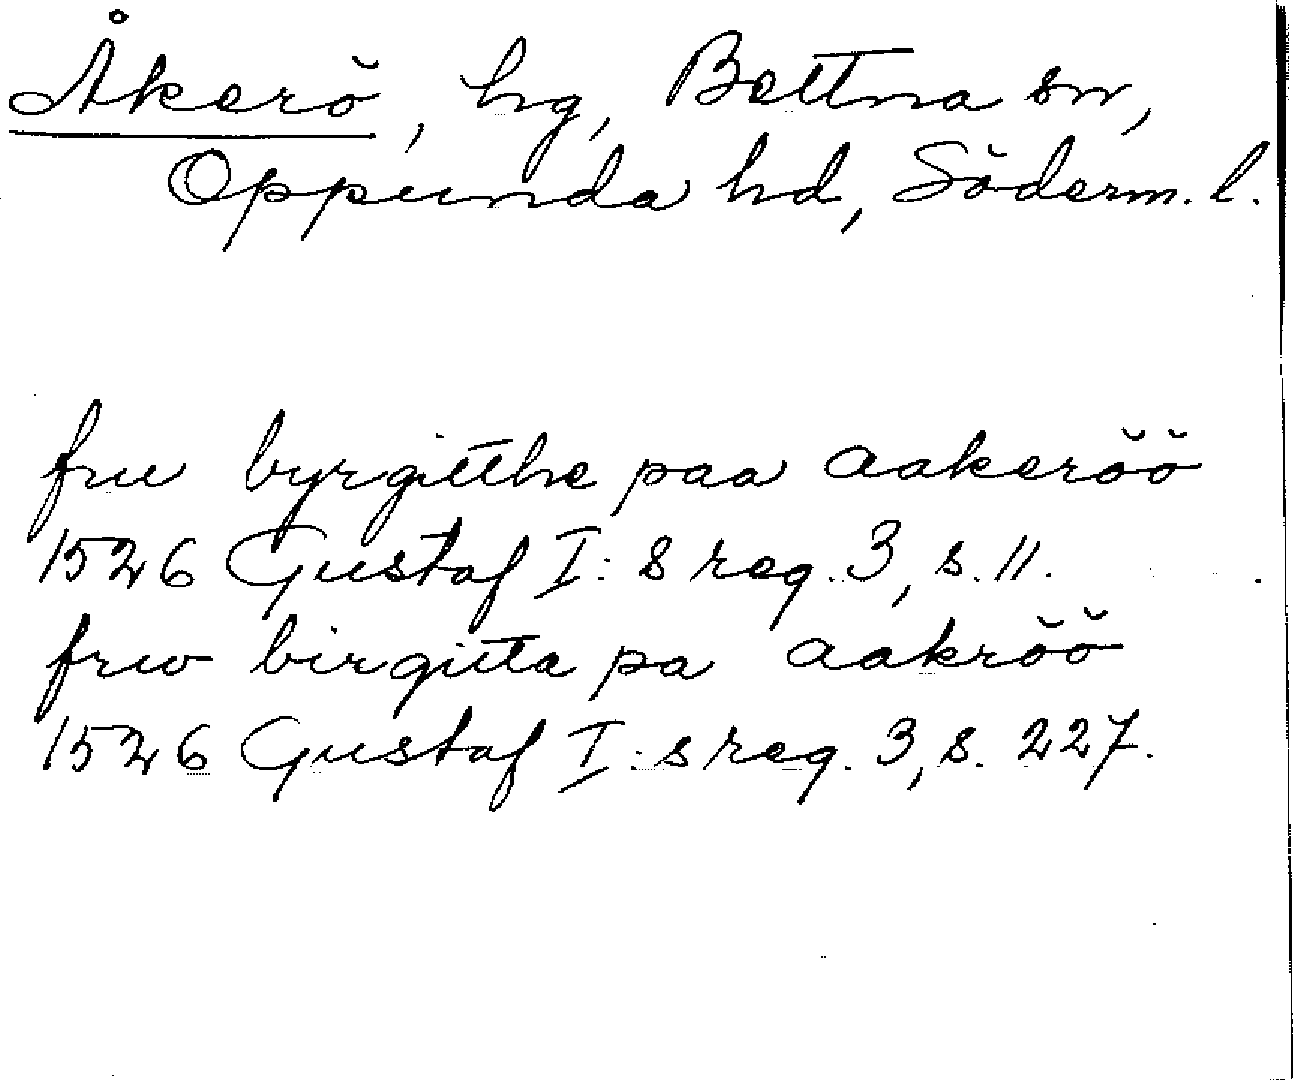 Åkerö, hg, Bettna sn,
Oppunda hd, Söderm. l.
fru byrgitthe paa aakeröö
1526 Gustaf I: s reg. 3, s. 11.
frw birgitta pa aakröö
1526 Gustaf I: s reg. 3, s. 227.